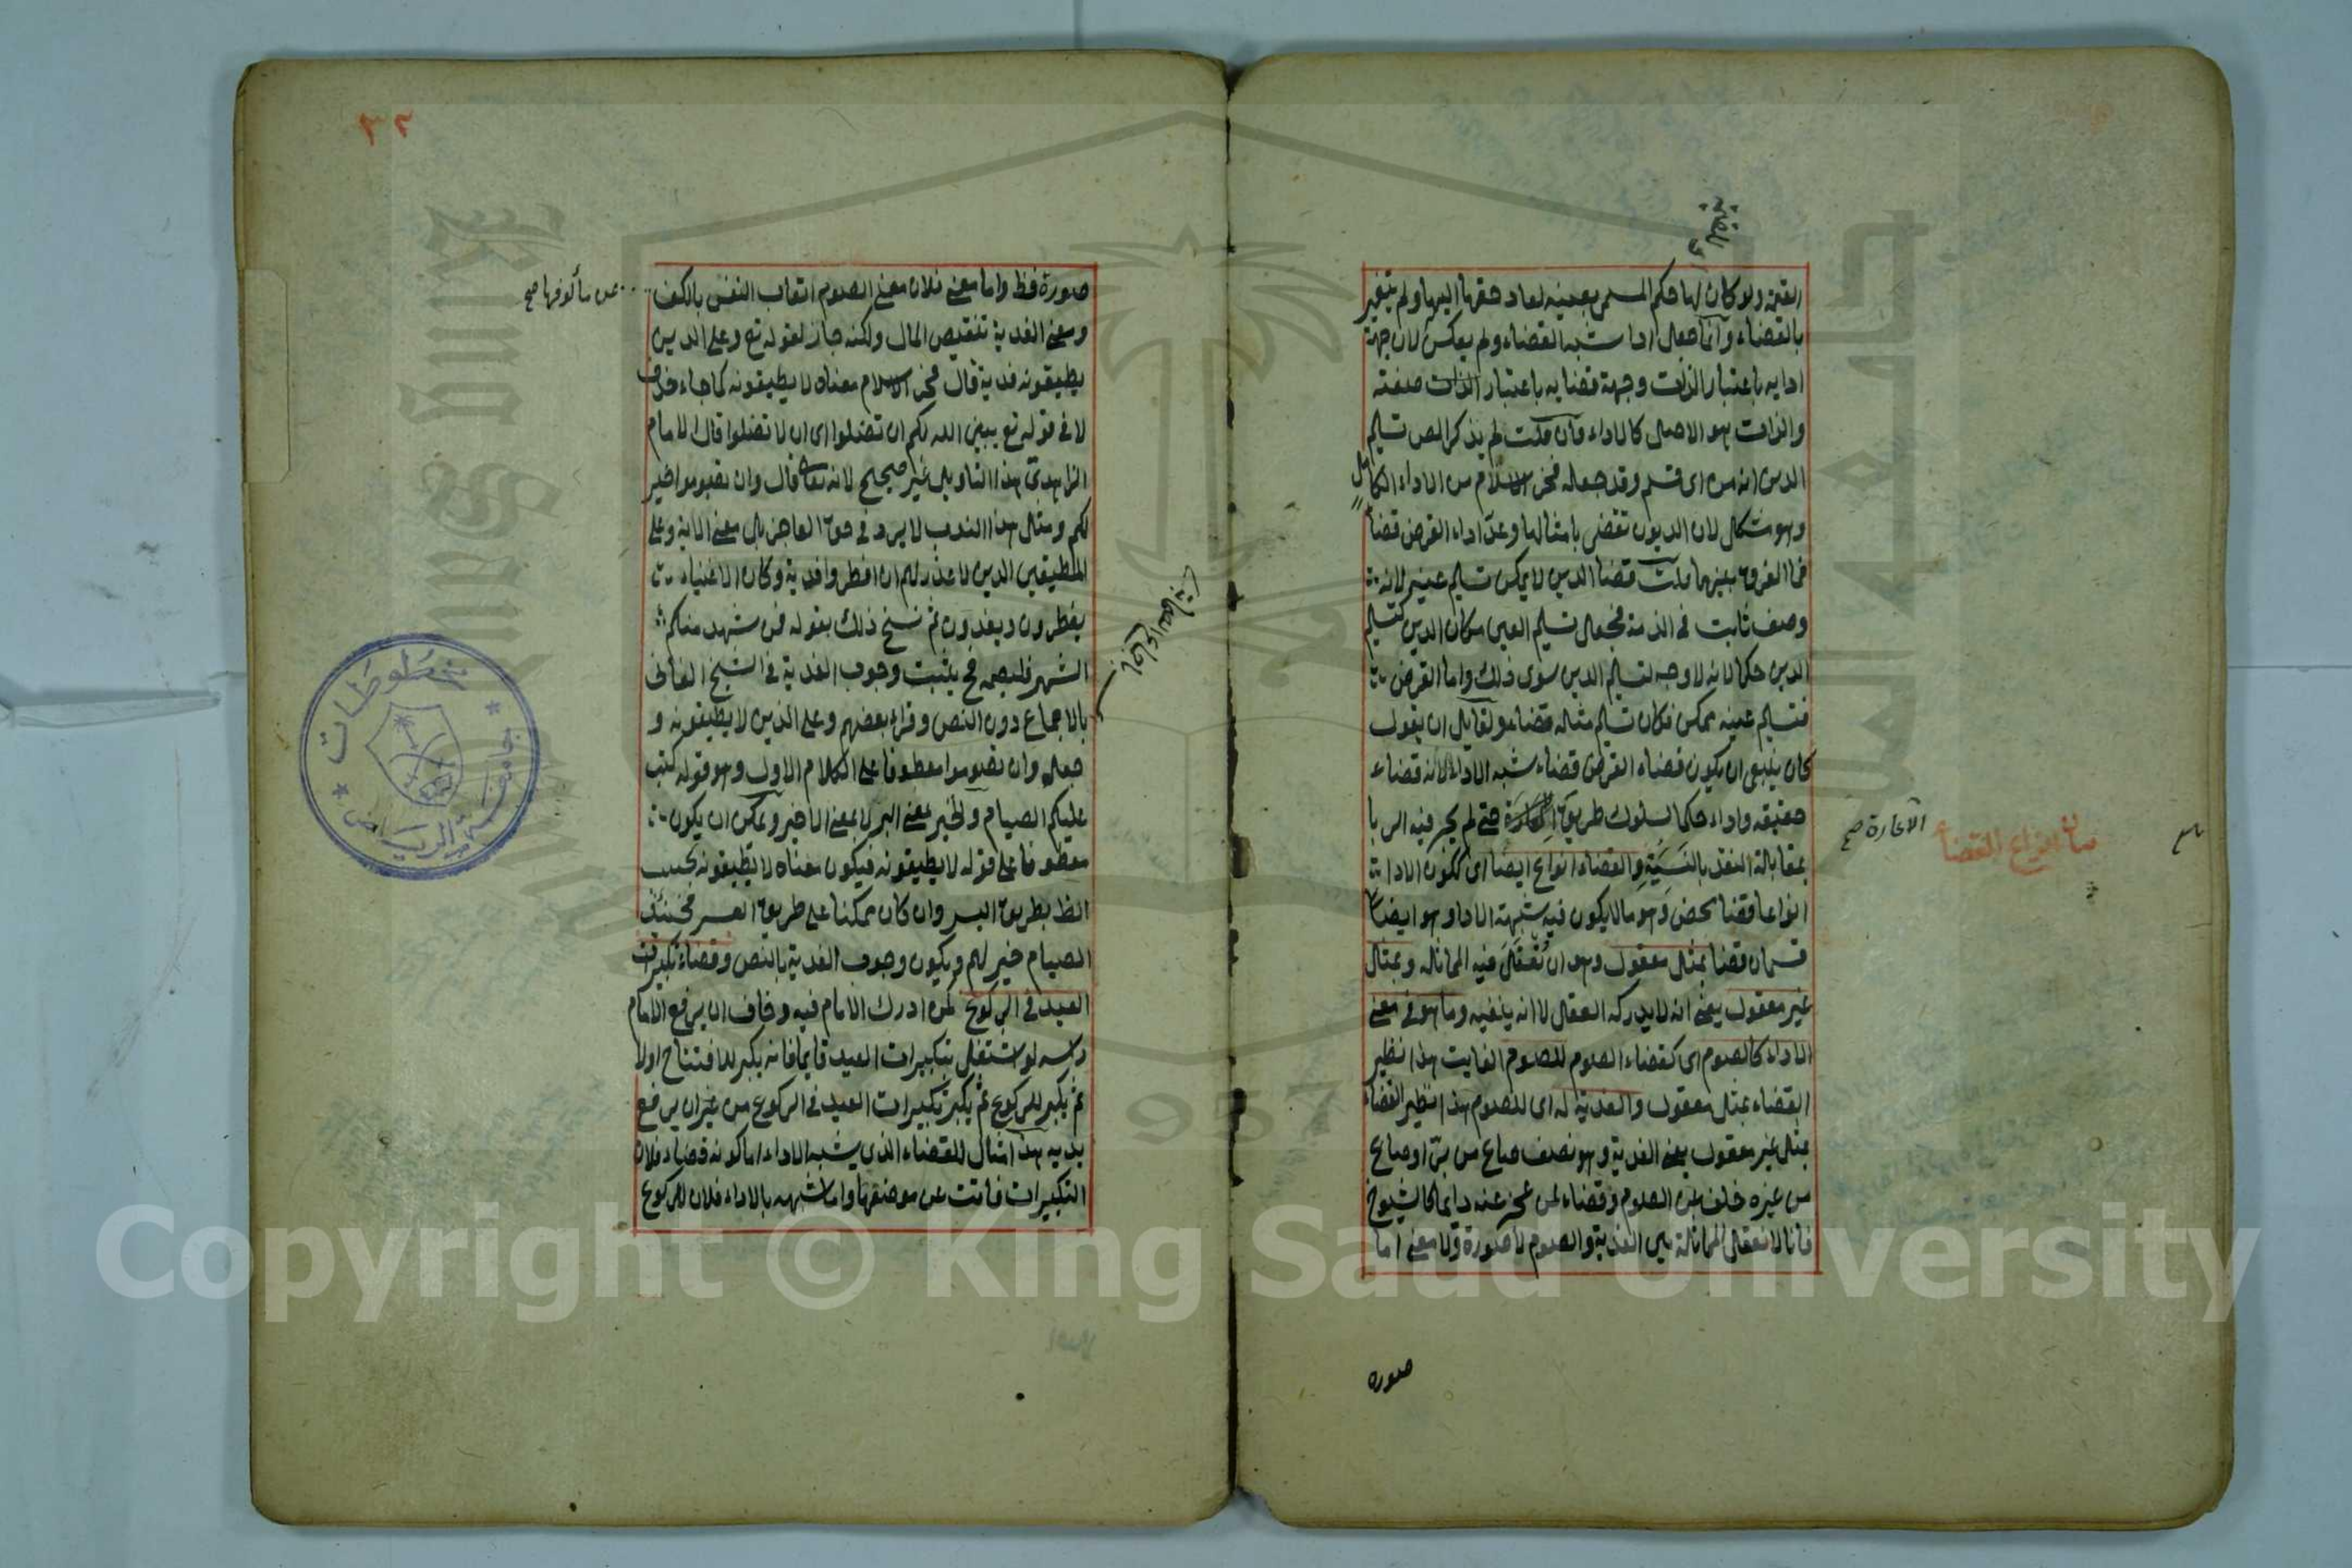 القيمة ولو كان لها حكم المسمى بعينه لعاد حقها اليها ولم يتغير
بالقضاء وانما جعل ادا شبه القضاء ولم يعكس لان جهة
ادايه باعتبار الذات وجهة قضايه باعتبار الذات صفته
والذات هو الاصل كالاداء وان قلت لم يذكر المص تسليم
الدين انه من اى قسم وقد جعله فخر الاسلام من الاداء الكامل
وهو مشكل لان الديون تقضى بامثالها وعد اداء القرض قضا
فما الفرق بينهما قلت قضا الدين لا يمكن تسليم عينه لانه
وصف ثابت فى الذمة فجعل تسليم العين مكان الدين كتسليم
الدين حكما لانه لا وجه لتسليم الدين سوى ذلك واما القرض
فتسليم عينه ممكن فكان تسليم مثاله قضاء ولقايل ان يقول
كان ينبغى ان يكون قضاء القرض قضاء شبه الاداء لانه قضاء
حقيقه واداء حكما لسلوك طريق حتى لم يجر فيه الربا
بمقابلة النقد بالنسية والقضاء انواع ايضا اى ككون الادا
انواعا قضا محض وهو مالا يكون فيه شبهة الادا وهو ايضا
قسمان قضا بمثل معقول وهو ان تعقل فيه المماثله وبمثل
غير معقول يعنى انه لا يدركه العقل لا انه ينفيه وما هو فى معنى
الاداء كالصوم اى كقضاء الصوم للصوم الفايت هذا نظير
القضاء بمثل معقول والفدية له اى للصوم هذا نظير القضاء
بمثل غير معقول يعنى الفدية وهو نصف صاع من بر او صاع
من غيره خلف عن الصوم وقضاء لمن عجز عنه دايما كالشيوخ
فانا لا نعقل المماثلة بين الفدية والصوم لا صورة ولا معنى اما
الاعارة صح
بيان انواع القضاء
صورة
٣٢
صورة فظ واما معنى فلان معنى الصوم اتعاب النفس بالكف
عن مألوفها صح
ومعنى الفدية تنقيص المال ولكنه جاز لقوله تع وعلى الذين
يطيقونه فدية قال فخر الاسلام معناه لا يطيقونه كما جاء حذف
لا فى قوله تع يبين الله لكم ان تضلوا اى ان لا تضلوا قال الامام
الزاهدى هذا التاويل غير صحيح لانه تعالى قال وان تصوموا خير
لكم ومثل هذا الندب لا يرد فى حق العاجز بل معنى الاية وعلى
المطيقين الذين لا عذر لهم ان افطروا فدية وكان الاغنياء
يفطرون ويفدون ثم نسخ ذلك بقوله فمن شهد منكم
الشهر فليصمه فح يثبت وجوب الفدية فى الشيخ الفانى
بالاجماع دون النص وقراء بعضهم وعلى الذين لا يطيقونه و
جعل وان تصوموا معطوفا على الكلام الاول وهو قوله كتب
عليكم الصيام والخير بمعنى البر لا بمعنى الاخير ويمكن ان يكون
معطوفا على قوله لا يطيقونه فيكون معناه لا يطيقونه بحسب
الظ بطريق اليسر وان كان ممكنا على طريق العسر فحينئذ
الصيام خير لهم ويكون وجوب الفدية بالنص وقضاء تكبيرات
العيد فى الركوع لمن ادرك الامام فيه وخاف ان يرفع الامام
راسه لو اشتغل بتكبيرات العيد قايما فانه يكبر للافتتاح اولا
ثم يكبر للركوع ثم يكبر تكبيرات العيد فى الركوع من غير ان يرفع
يديه هذا مثال للقضاء الذى يشبه الاداء اما كونه قضاء فلان
التكبيرات فاتت عن موضعها واما شبهه بالاداء فلان للركوع
مخطوطات
جامعة الرياض
Copyright © King Saud University
1957